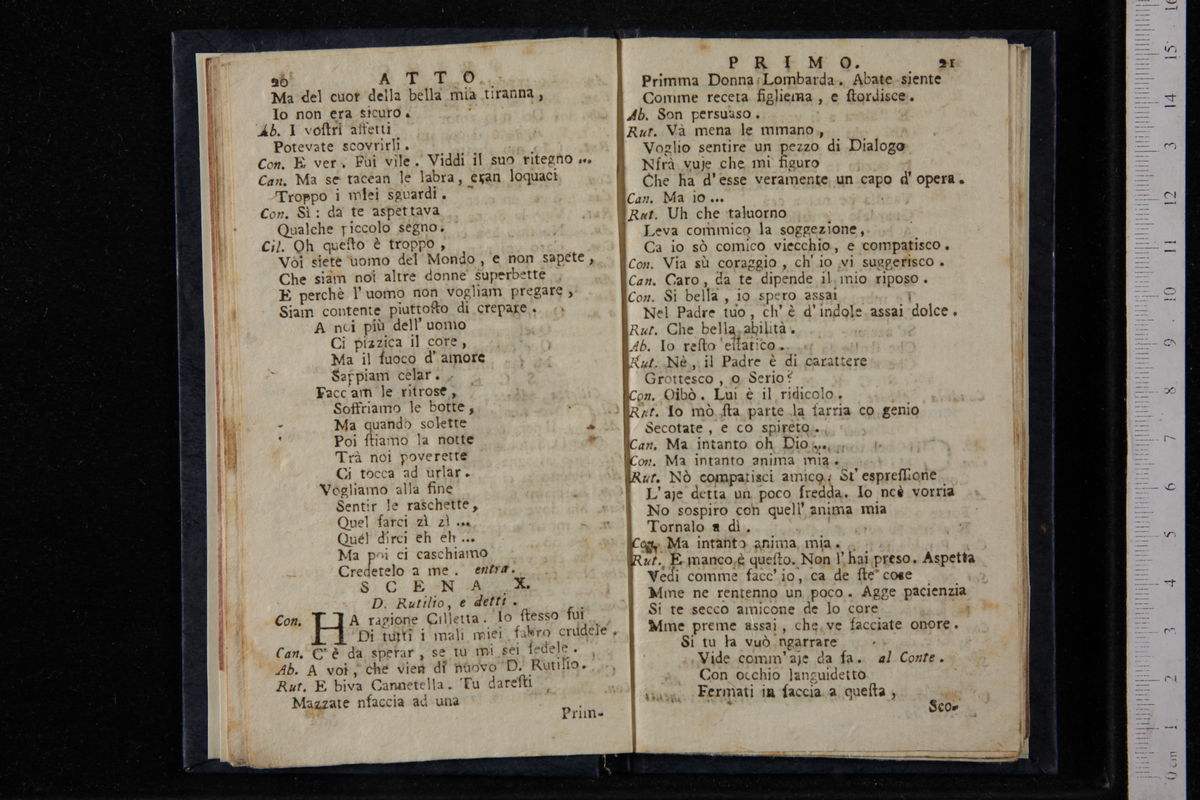 20 ATTO
Ma del cuor della bella mia tiranna,
Io non era sicuro.
Ab. I vostri affetti
Potevate scovrirli.
Con. E ver. Fui vile. Viddi il suo ritegno ...
Can. Ma se tacean le labra, eran loquaci
Troppo i miei sguardi.
Con. Sì: da te aspettava
Qualche piccolo segno.
Cil. Oh questo è troppo,
Voi siete uomo del Mondo, e non sapete,
Che siam noi altre donne superbette
E perchè l'uomo non vogliam pregare,
Siam contente piuttosto di crepare.
A noi più dell'uomo
Ci pizzica il core,
Ma il fuoco d'amore
Sappiam celar.
Facciam le ritrose,
Soffriamo le botte,
Ma quando solette
Poi stiamo la notte
Trà noi poverette
Ci tocca ad urlar.
Vogliamo alla fine
Sentir le raschette,
Quel farci zì zì ...
Quel dirci eh eh ...
Ma poi ci caschiamo
Credetelo a me. entra.
SCENA X.
D. Rutilio, e detti.
Con. HA ragione Cilletta. Io stesso fui
Di tutti i mali miei fabro crudele.
Can. C'è da sperar, se tu mi sei fedele.
Ab. A voi, che vien di nuovo D. Rutilio.
Rut. E biva Cannetella. Tu daresti
Mazzate nfaccia ad una
Prim-
PRIMO. 21
Primma Donna Lombarda. Abate siente
Comme receta figliema, e stordisce.
Ab. Son persuaso.
Rut. Và mena le mmano,
Voglio sentire un pezzo di Dialogo
Nfrà vuje che mi figuro
Che ha d'esse veramente un capo d'opera.
Can. Ma io ...
Rut. Uh che taluorno
Leva commico la soggezione,
Ca io sò comico viecchio, e compatisco.
Con. Via sù coraggio, ch'io vi suggerisco.
Can. Caro, da te dipende il mio riposo.
Con. Si bella, io spero assai
Nel Padre tuo, ch'è d'indole assai dolce.
Rut. Che bella abilità.
Ab. Io resto estatico.
Rut. Nè, il Padre è di carattere
Grottesco, o Serio?
Con. Oibò. Lui è il ridicolo.
Rut. Io mò sta parte la farria co genio
Secotate, e co spireto.
Can. Ma intanto oh Dio ...
Con. Ma intanto anima mia.
Rut. Nò compatisci amico. St'espressione
L'aje detta un poco fredda. Io nce vorria
No sospiro con quell'anima mia
Tornalo a dì.
Con. Ma intanto anima mia.
Rut. E manco è questo. Non l'hai preso. Aspetta
Vedi comme facc'io, ca de ste cose
Mme ne rentenno un poco. Agge pacienzia
Si te secco amicone de lo core
Mme preme assai, che ve facciate onore.
Si tu la vuò ngarrare
Vide comm'aje da fa. al Conte.
Con occhio languidetto
Fermati in faccia a questa,
Sco-